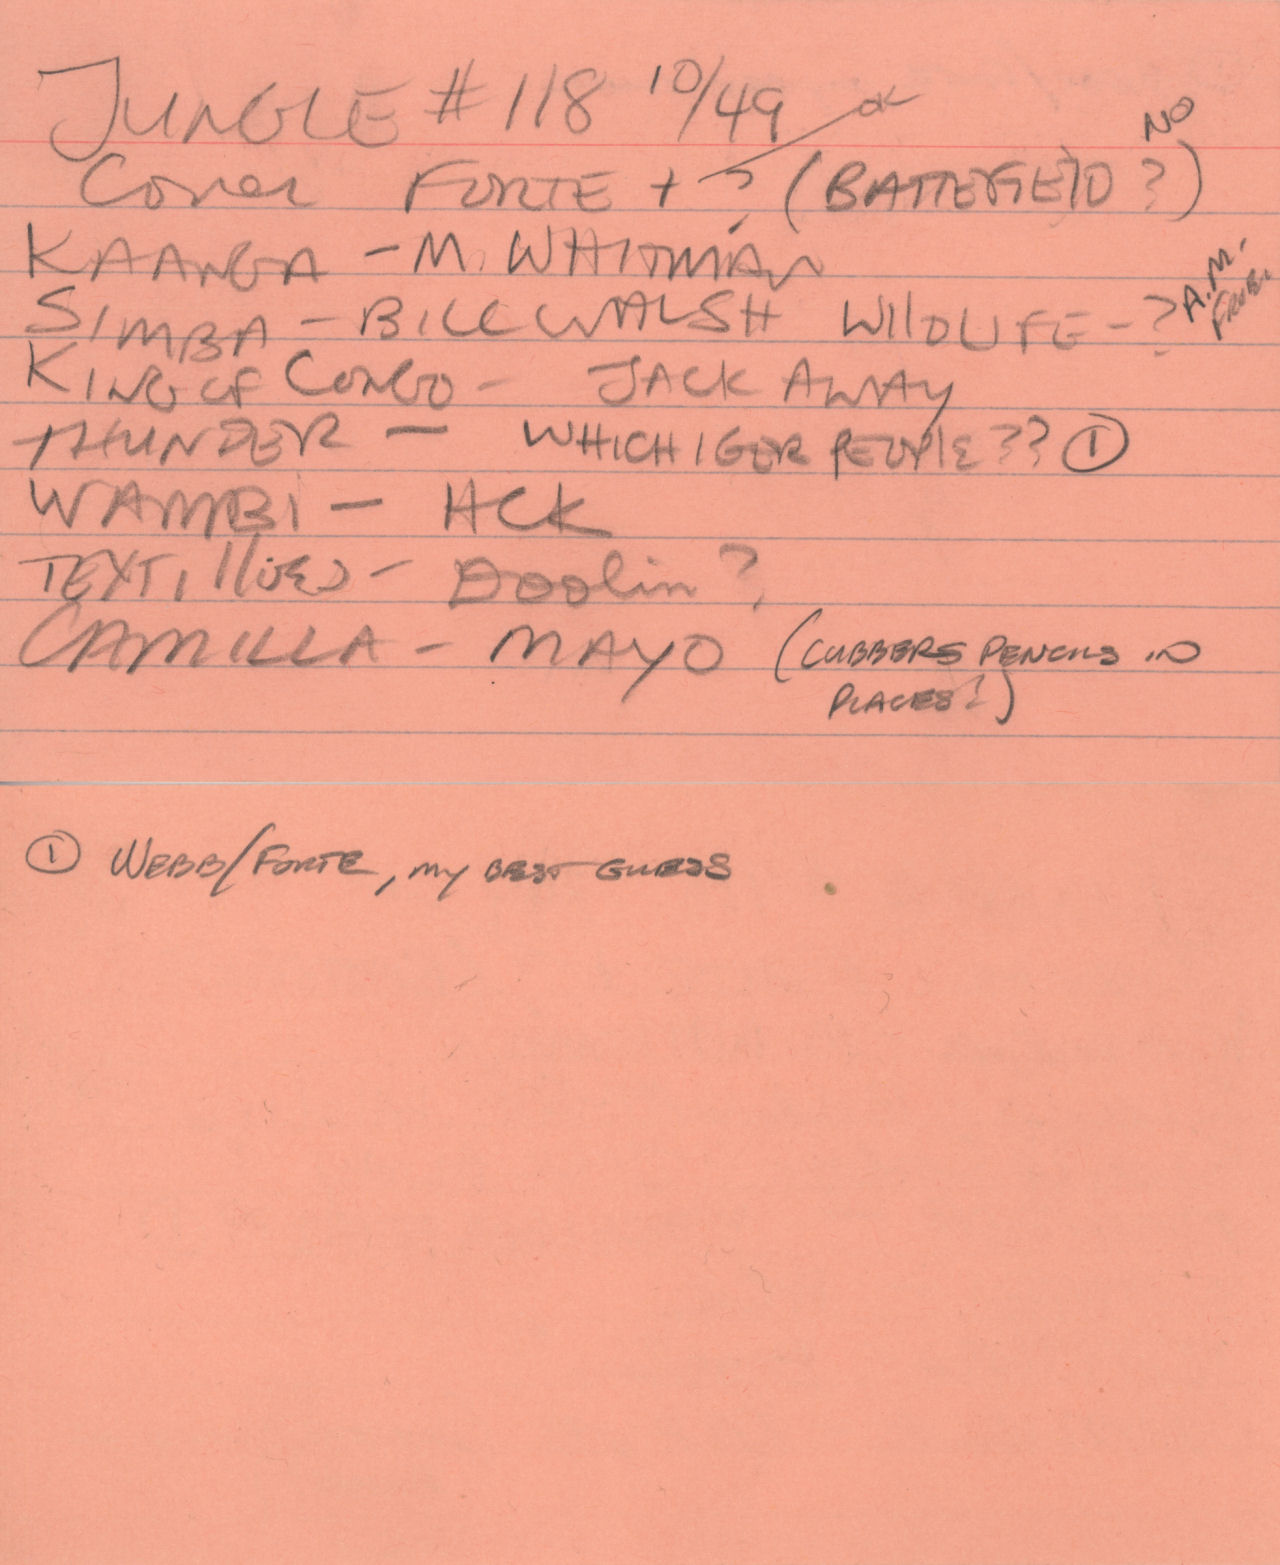 JUNGLE #118 10/49
OK
NO
Cover FORTE + ? (BATTEFIELD ?)
KAANGA - M. WHITMAN
SIMBA - BILL WALSH WILDLIFE - ? A.M.
KING OF CONGO - JACK AWAY
THUNDER - WHICH IGER PEOPLE?? ①
WAMBI - HCK
TEXT, Illos - Doolin?
CAMILLA - MAYO (CUBBERS PENCILS IN
PLACES?)
① WEBB/FORTE, MY BEST GUESS